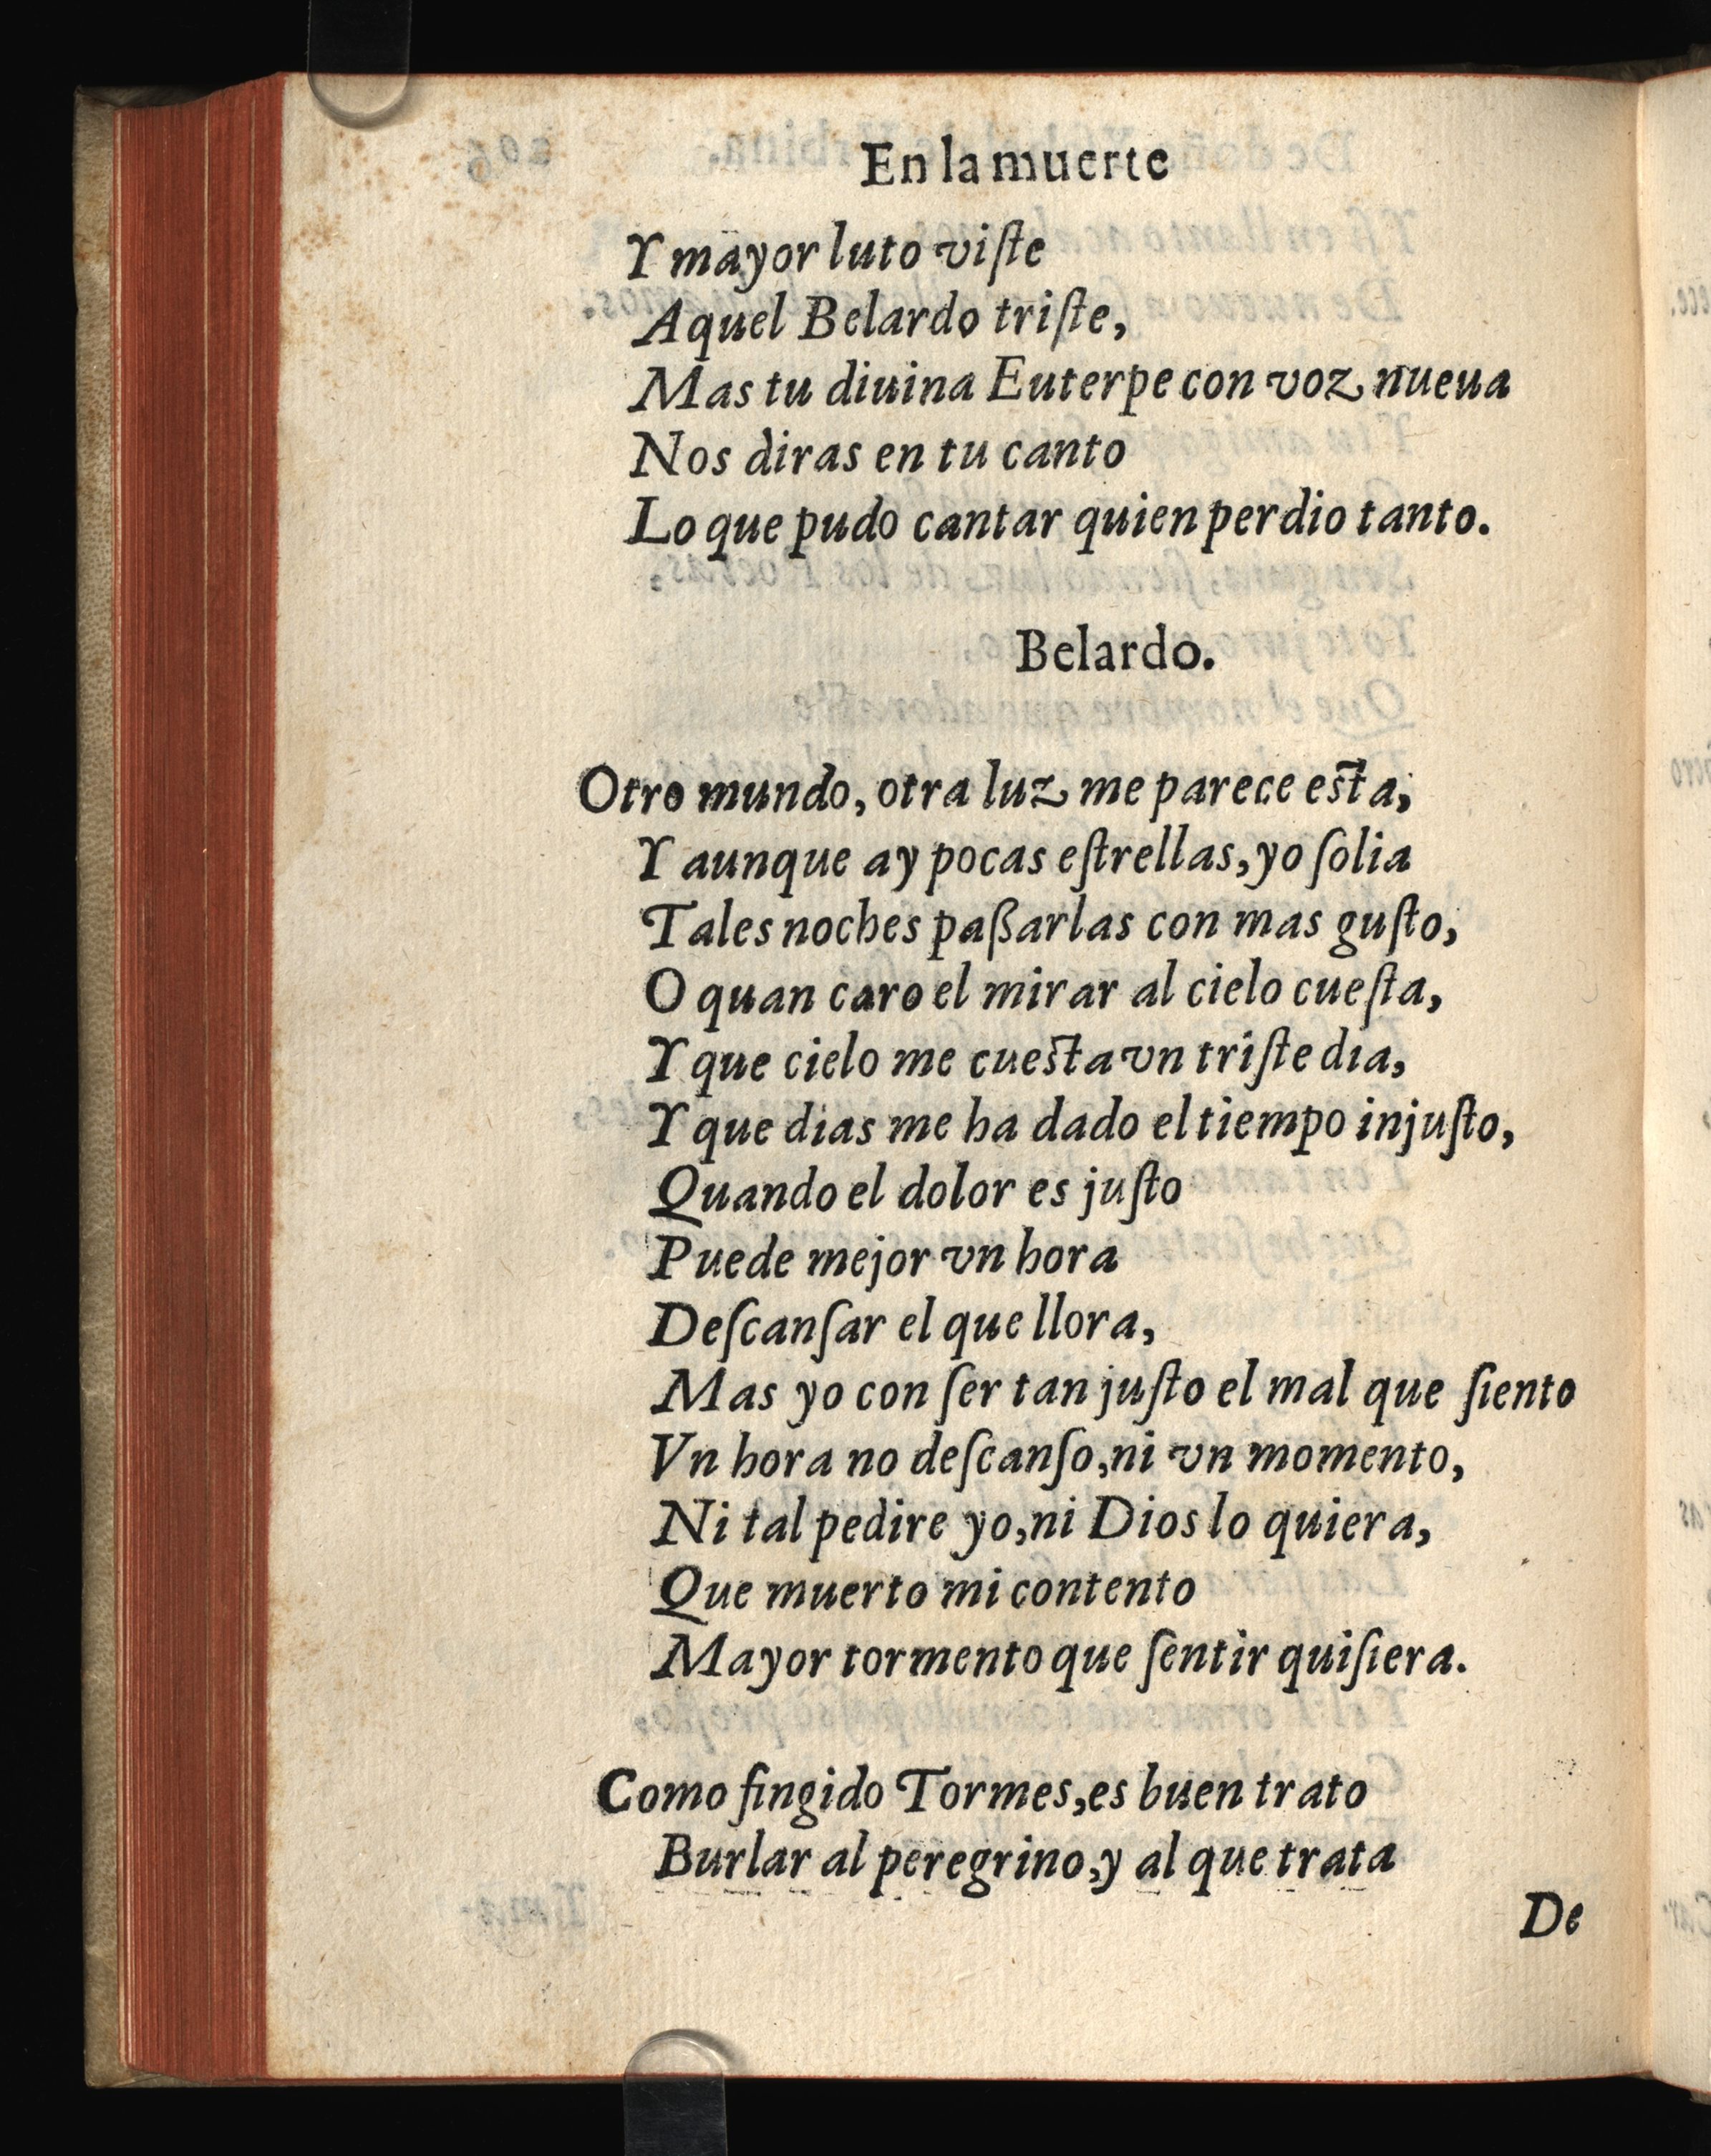 En la muerte
Y mayor luto viſte
Aquel Belardo triſte,
Mas tu diuina Euterpe con voz nueua
Nos diras en tu canto
Lo que pudo cantar quien perdio tanto.
Belardo.
Otro mundo, otra luz me parece esta,
Y aunque ay pocas eſtrellas, yo ſolia
Tales noches paßarlas con mas guſto,
O quan caro el mirar al cielo cueſta,
Y que cielo me cuesta vn triſte dia,
Y que dias me ha dado el tiempo injuſto,
Quando el dolor es juſto
Puede mejor vn hora
Deſcanſar el que llora,
Mas yo con ſer tan juſto el mal que ſiento
Vn hora no deſcanſo, ni vn momento,
Ni tal pedire yo, ni Dios lo quiera,
Que muerto mi contento
Mayor tormento que ſentir quiſiera.
Como fingido Tormes, es buen trato
Burlar al peregrino, y al que trata
De